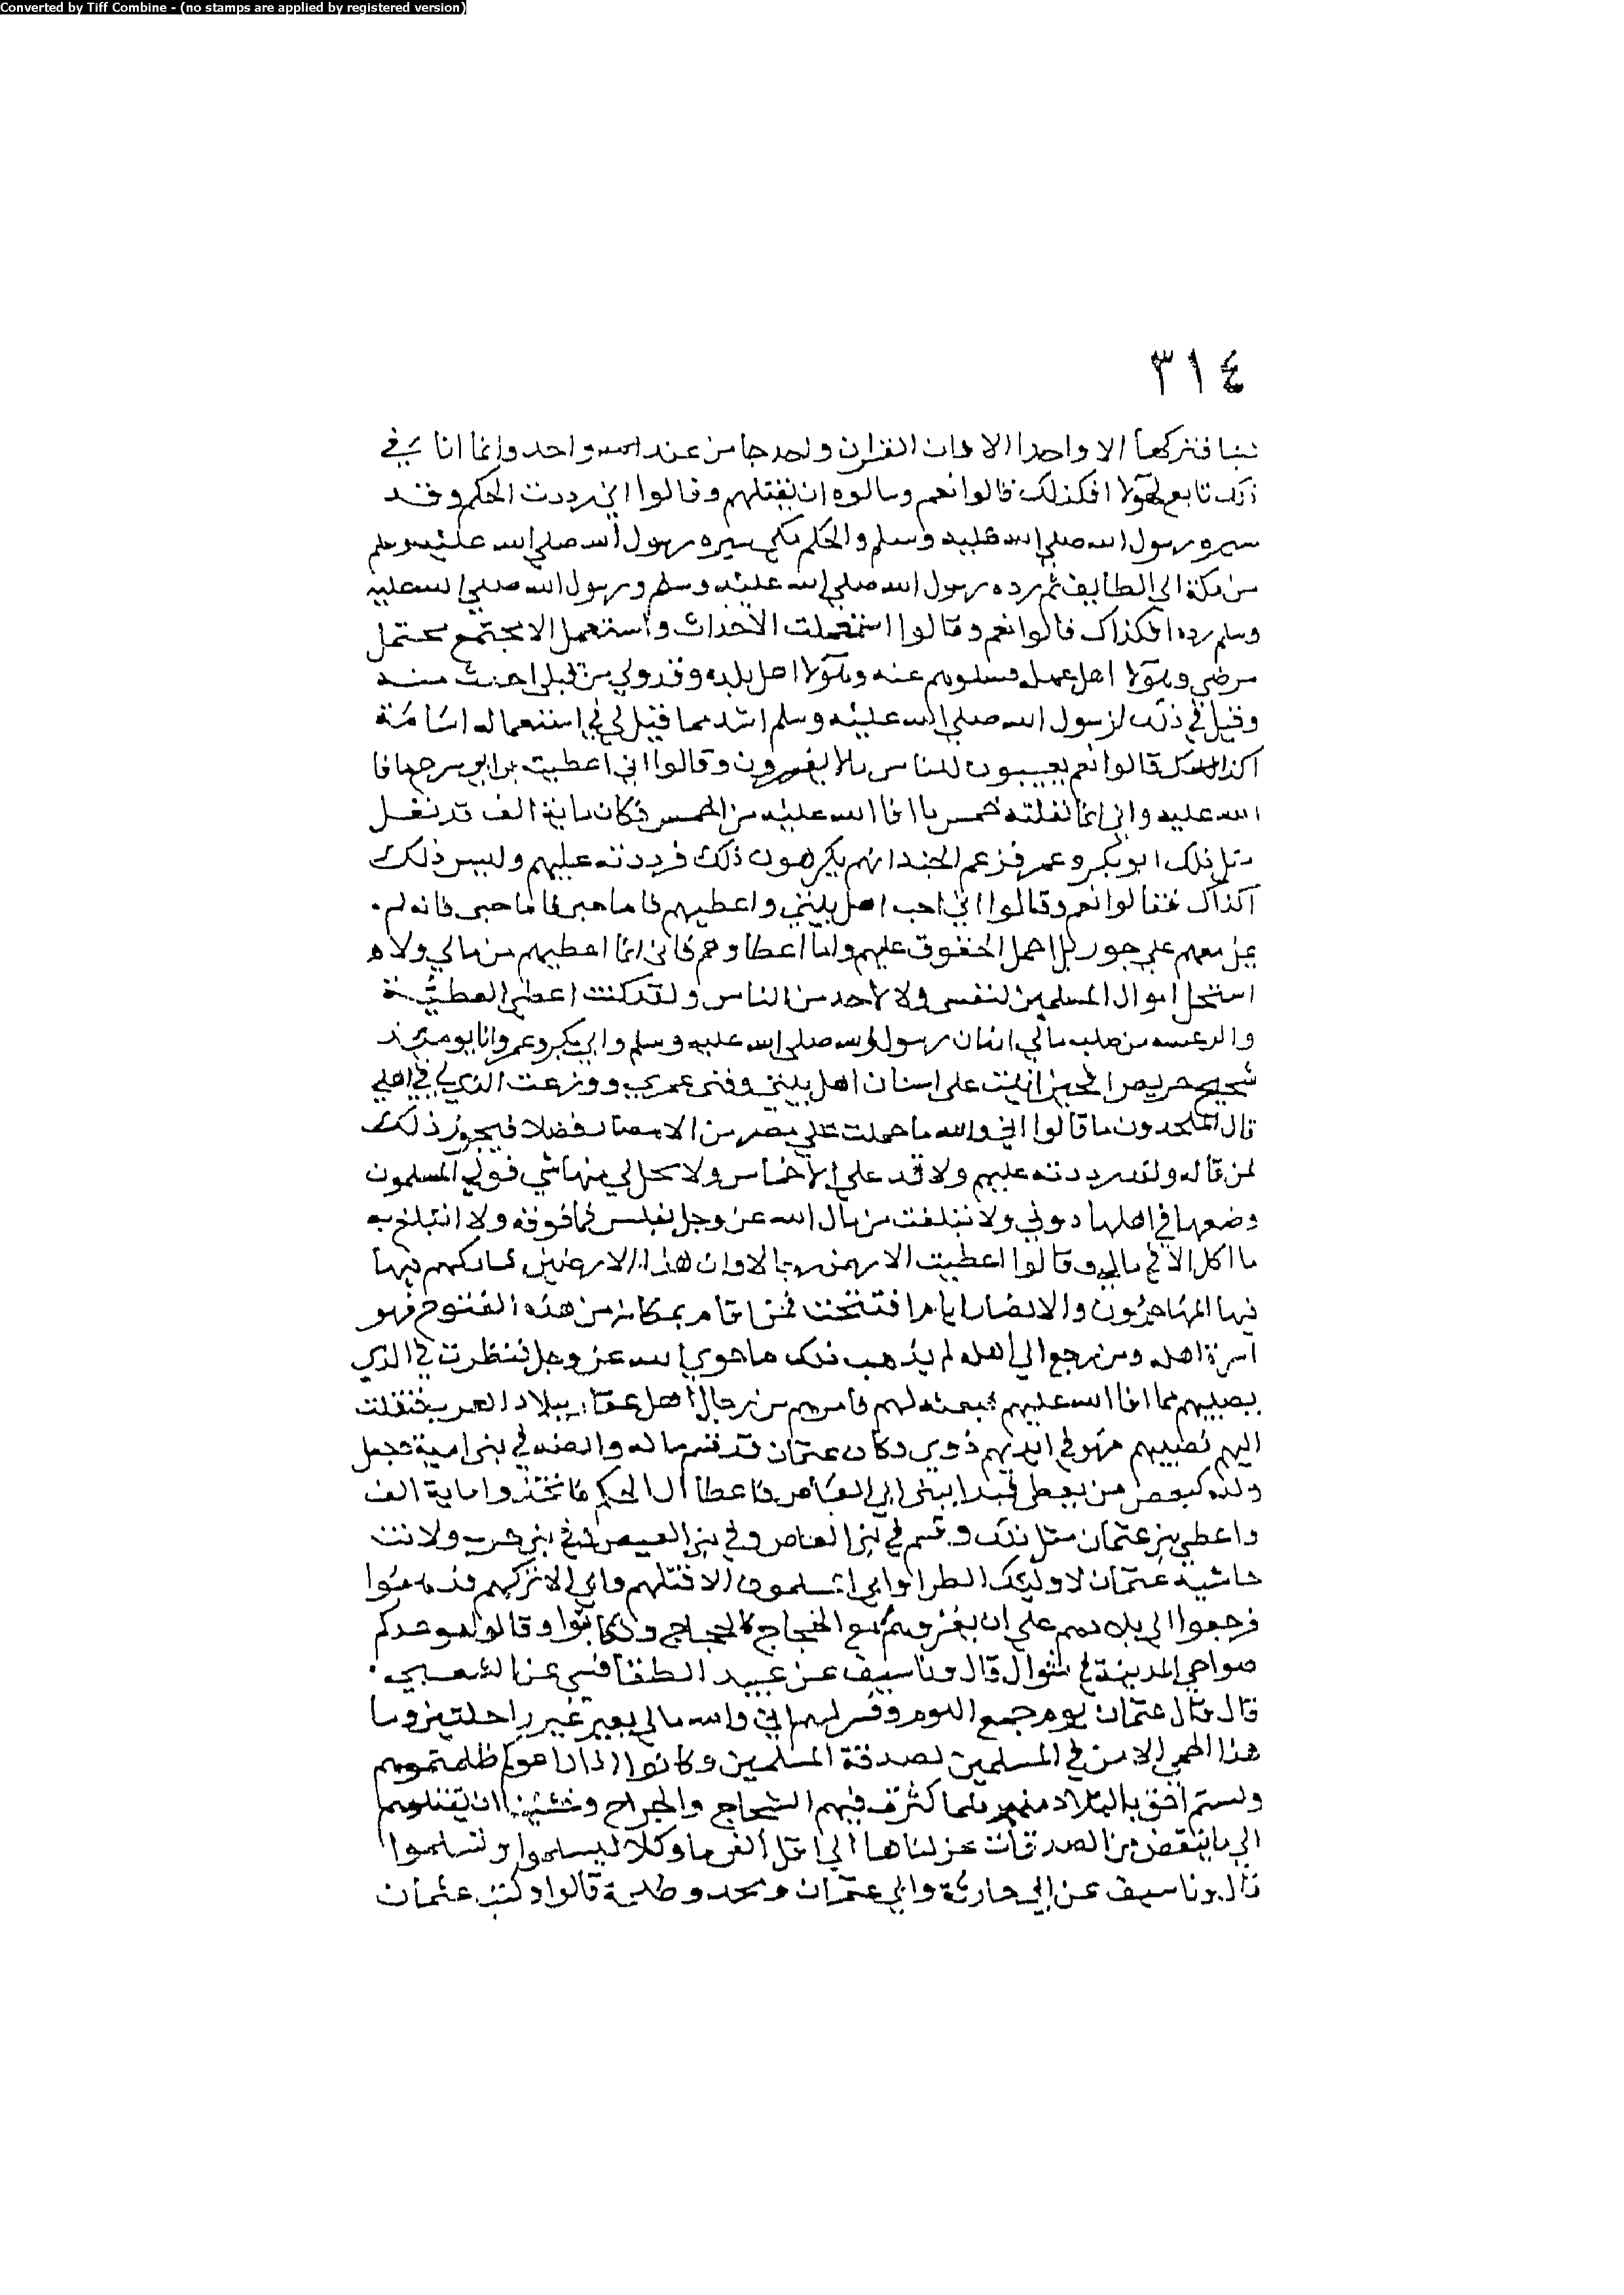 Converted by Tiff Combine - (no stamps are applied by registered version)
٣١٤
فتركها الا واحدا الا وان القران واحد جا من عند الله واحد وانما انا في
ذلك تابع لهولا افكذلك قالوا نعم وسالوه ان يقتلهم وقالوا اني رددت الحكم وقد
سيره رسول الله صلي الله عليه وسلم والحكم مكي سيره رسول الله صلي الله عليه وسلم
من مكة الي الطايف ثم رده رسول الله صلي الله عليه وسلم ورسول الله صلي الله عليه
وسلم رده افكذاك قالوا نعم وقالوا استعملت الاحداث ولم استعمل الا مجتمع محتمل
مرضي وهولا اهل عمله فسلوهم عنه وهولا اهل بلده وقد ولي من قبلي احدث منه
وقيل في ذلك لرسول الله صلي الله عليه وسلم اشد مما قيل لي في استعماله اسامة
اكذلك قالوا نعم يعيبون للناس ما لا يفسرون وقالوا اني اعطيت بن ابي سرح ما افا
الله عليه واني انما نفلته خمس ما افا الله عليه من الخمس فكان ماية الف وقد نفل
مثل ذلك ابو بكر وعمر فزعم الجند انهم يكرهون ذلك فرددته عليهم وليس ذلك
اكذاك فقالوا نعم وقالوا اني احب اهل بيتي واعطيهم فاما حبي فانه لم
يمل معهم علي جور بل احمل الحقوق عليهم واما اعطاوهم فاني انما اعطيهم من مالي ولا
استحل اموال المسلمين لنفسي ولا لاحد من الناس ولقد كنت اعطي العطية
من صلب مالي ازمان رسول الله صلي الله عليه وسلم وابي بكر وعمر وانا يوميذ
شحيح حريص افحين اتيت علي اسنان اهل بيتي وفني عمري وودعت الذي لي في اهلي
قال الملحدون ما قالوا اني والله ما حملت علي مصر من الامصار فضلا فيجوز ذلك
لمن قاله ولقد رددته عليهم ولا قدم علي الا الاخماس ولا يحل لي منها شي فولي المسلمون
وضعها في اهلها دوني ولا يتلفت من مال الله عز وجل بفلس فما فوقه ولا اتبلغ به
ما اكل الا في مالي وقالوا اعطيت الارض رجالا وان هذه الارضين شاركهم فيها
فيها المهاجرون والانصار ايام افتتحت فمن اقام بمكانه من هذه الفتوح فهو
اسرة اهله ومن رجع الي اهله لم يذهب ذلك ما حوي الله عز وجل فنظرت في الذي
يصيبهم مما افا الله عليهم فبعته لهم بامرهم من رجال اهل عقار ببلاد العرب فنقلت
اليهم نصيبهم فهو في ايديهم دوني وكان عثمان قد قسم ماله وارضه في بني امية فجعل
ولده كبعض من يعطي فبدا ببني ابي العاص فاعطا ال الحكم فاخذوا ماية الف
واعطي بني عثمان مثل ذلك وقسم في بني العاص وفي بني العيص وفي بني حرب ولانت
حاشية عثمان لاوليك الطرا وابي المسلمون الا قتلهم وابي الا تركهم فذهبوا
فرجعوا الي بلادهم علي ان يغزوه مع الحجاج كالحجاج وتكاتبوا وقالوا موعدكم
ضواحي المدينة في شوال قال ونا سيف عن عبيد الطنافسي عن الشعبي
قال قال عثمان يوم جمع القوم وفسر لهم اني والله مالي بعير غير راحلتين وما
هذا الحمي الا من في المسلمين لصدقة المسلمين
فلما كثرت فيهم الشجاج والجراح وخشينا ان يقتلوهما
قال ونا سيف عن ابي حارثة وابي عثمان ومحمد وطلحة قالوا وكتب عثمان